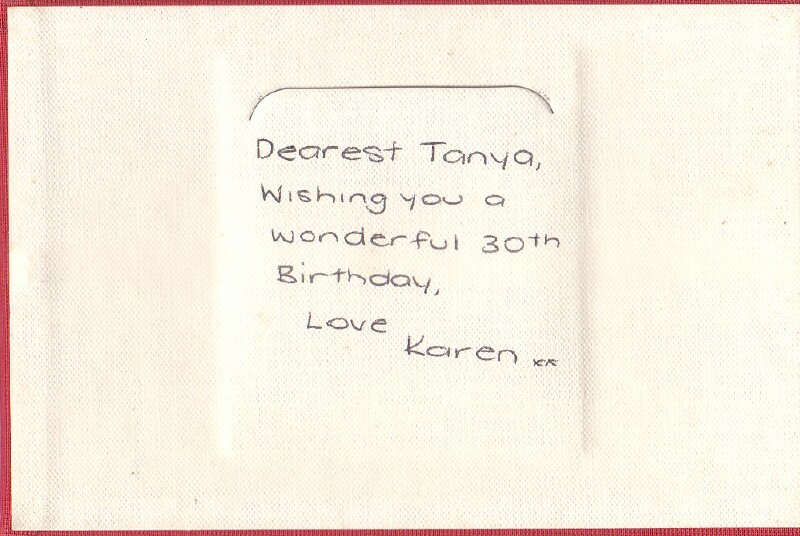 Dearest Tanya,
Wishing you a
wonderful 30th
Birthday,
Love
Karen xx